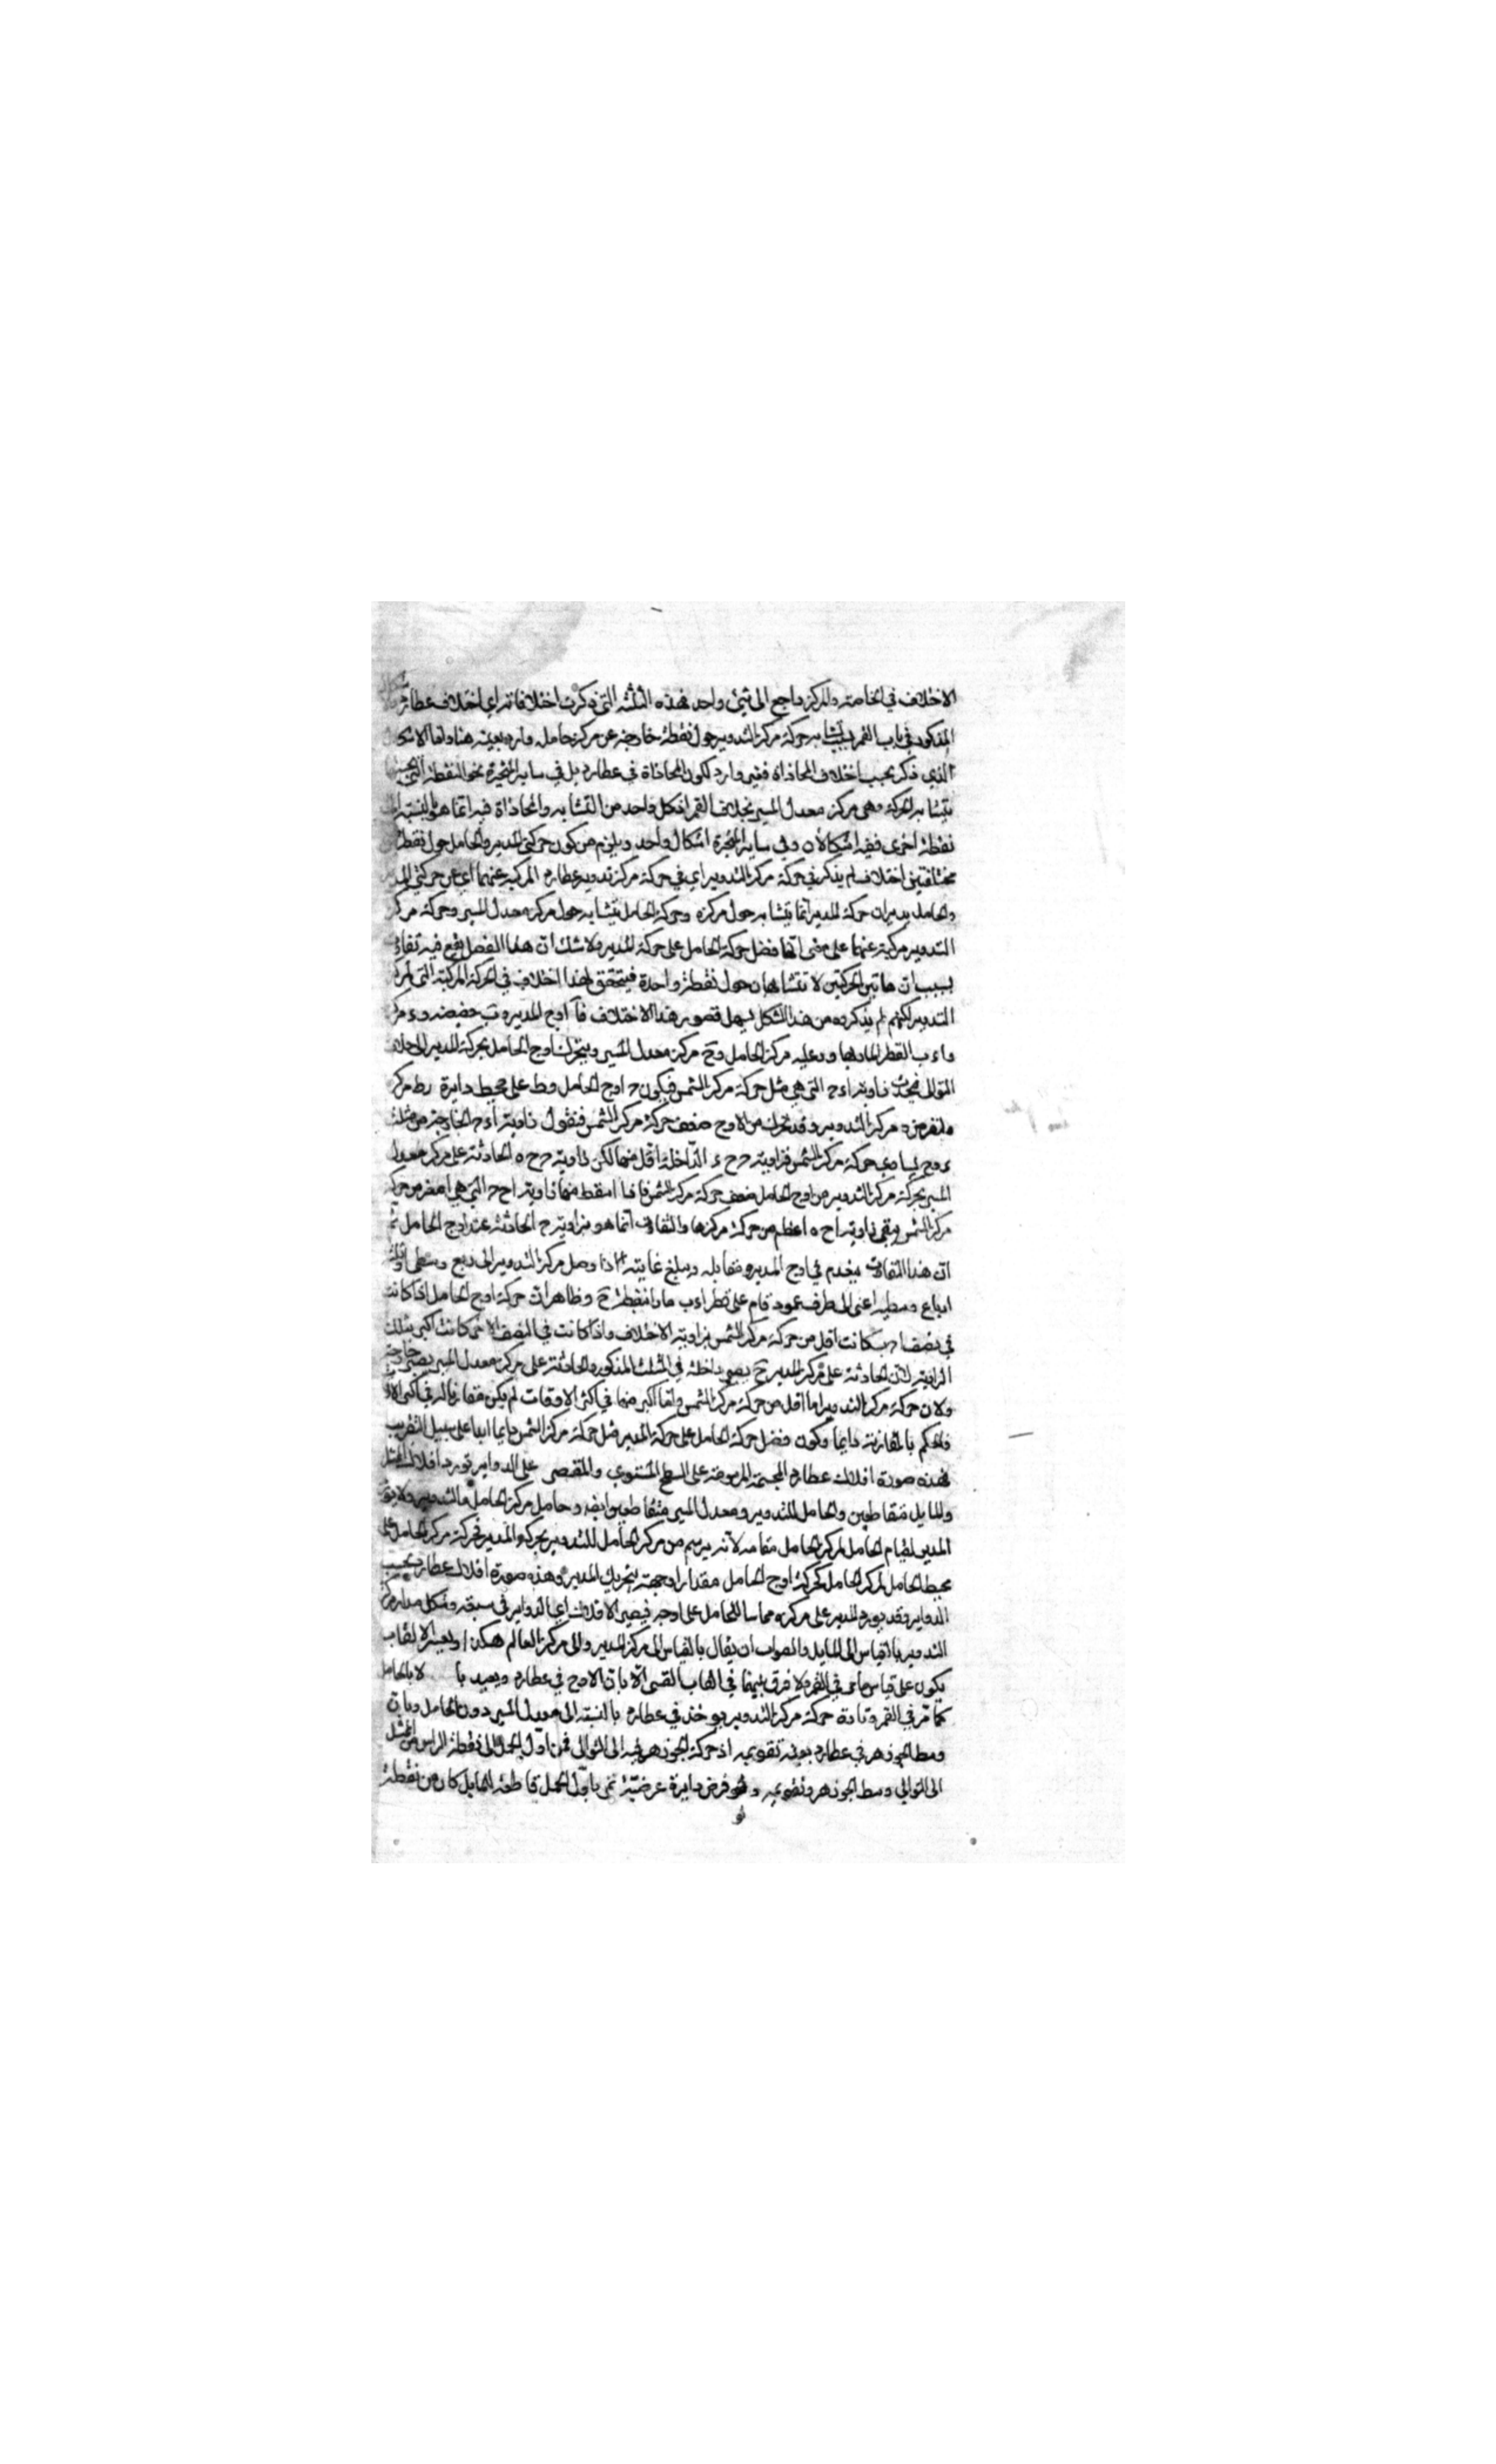 الاختلاف في الخاصة والمركز راجع الى شيئ واحد فهذه الثلثة التي ذكرت اختلافاته اي اختلاف عطارد
المذكور في باب القمر بسبب تشابه حركة مركز التدوير حول نقطة خارجة عن مركز حامله وارد بعينه هنا واما الاشكال
الذي ذكر بحسب اختلاف المحاذاة فغير وارد لكون المحاذاة في عطارد بل في ساير المتحيرة نحو النقطة التي بحسبها
يتشابه الحركة وهي مركز معدل المسير بخلاف القمر اذ كل واحد من التشابه والمحاذاة فيه انما هو بالنسبة الى
نقطة اخرى ففيه اشكالان وفي ساير المتحيرة اشكال واحد ويلزم من كون حركتي المدير والحامل حول نقطتين
مختلفتين اختلاف لم يذكر في حركة مركز التدوير اي في حركة مركز تدوير عطارد المركبة عنهما اي عن حركتي المدير
والحامل يريد ان حركة المدير انما يتشابه حول مركزه وحركة الحامل يتشابه حول مركز معدل المسير وحركة مركز
التدوير مركبة عنهما على معنى انها فضل حركة الحامل على حركة المدير ولا شك ان هذا الفضل يقع فيه تفاوت
بسبب ان هاتين الحركتين لا تتشابهان حول نقطة واحدة فيتحقق لهذا اختلاف في الحركة المركبة التي لمركز
التدوير لكنهم لم يذكروه من هذا الشكل يسهل تصور هذا الاختلاف فآ اوج المدير وب حضيضه وء مركزه
واء ب القطر المار بها ود عليه مركز الحامل وح مركز معدل المسير ويتحرك اوج الحامل بحركة المدير الى خلاف
التوالي فيحدث زاوية اء ح التي هي مثل حركة مركز الشمس فيكون ح اوج الحامل وط على محيط دايرة
ولنفرض ه مركز التدوير وقد تحرك من الاوج ضعف حركة مركز الشمس فنقول زاوية اء ح الخارجة من مثلث
ء ح ح يساوي حركة مركز الشمس فزاوية ح ح ء الداخلة اقل منها لكن زاوية ح ح ه الحادثة على مركز معدل
المسير بحركة مركز التدوير من اوج الحامل ضعف حركة مركز الشمس فاذا اسقط منها زاوية ا ح ح التي هي اصغر من حركة
مركز الشمس يبقى زاوية ا ح ه اعظم من حركة مركزها والتفاوت انما هو بزاوية ح الحادثة عند اوج الحامل ثم
ان هذا التفاوت ينعدم في اوج المدير ومقابله ويبلغ غايته اذا وصل مركز التدوير الى ربع وسطى او ثلثة
ارباع وسطيه اعني الى طرف عمود قام على قطر اء ب مارا بنقطة ح وظاهر ان حركة اوج الحامل اذا كانت
في نصف ا ح ب كانت اقل من حركة مركز الشمس بزاوية الاختلاف واذا كانت في النصف الاخر كانت اكبر بتلك
الزاوية لان الحادثة على مركز المدير ح يصير داخلة في المثلث المذكور والحادثة على مركز معدل المسير يصير خارجة
ولان حركة مركز التدوير اما اقل من حركة مركز الشمس واما اكبر منها في اكثر الاوقات لم يكن مقارنا له في اكثر الاوقات
فالحكم بالمقارنة دايما وكون فضل حركة الحامل على حركة المدير مثل حركة مركز الشمس دايما ايضا على سبيل التقريب
فهذه صورة افلاك عطارد المجسمة المرسومة على السطح المستوي والمقتصر على الدواير يورد افلاك الممثل
والمايل متقاطعين والحامل للتدوير ومعدل المسير متقاطعين ايضا وحامل مركز الحامل والتدوير ولا يورد
المدير لقيام الحامل لمركز الحامل مقامه لانه يرسم من مركز الحامل للتدوير بحركة المدير فحركة مركز الحامل على
محيط الحامل لمركز الحامل كحركة اوج الحامل مقدارا وجهة بتحريك المدير وهذه صورة افلاك عطارد بحسب
الدواير وقد يورد المدير على مركزه مماسا للحامل على اوجه فيصير الافلاك اي الدواير في سبقه وشكل مدار مركز
التدوير بالقياس الى المايل والصواب ان يقال بالقياس الى مركز المدير والى مركز العالم هكذا وتعسر الالقاب
يكون على قياس ما مر في القمر ولا فرق بينهما في القاب القسي الا بان الاوج في عطارد وبعيد با لا بالحامل
كما مر في القمر وتارة حركة مركز التدوير يوخذ في عطارد بالنسبة الى معدل المسير دون الحامل وبان
وسط الجوزهر في عطارد بعينه تقويمه اذ حركة الجوزهر فيه الى التوالي فمن اول الحمل الى نقطة الراس من الممثل
الى التوالي وسط الجوزهر وتقويمه ولو فرض دايرة عرضية تمر باول الحمل قاطعة للمايل كان من نقطة